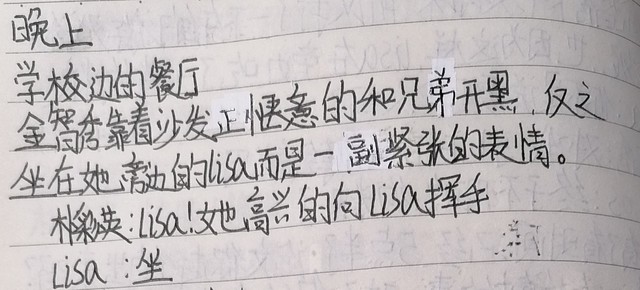 晚上
学校边的餐厅
金智秀靠着沙发正惬意的和兄弟开黑,反之
坐在她旁边的lisa而是一副紧张的表情。
朴彩英:lisa!她高兴的向Lisa挥手
Lisa:坐